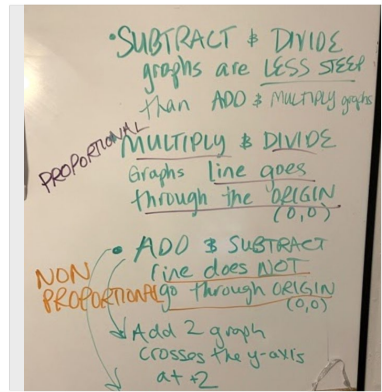 • SUBTRACT & DIVIDE
graphs are LESS STEEP
than ADD & MULTIPLY graphs
PROPORTIONAL
MULTIPLY & DIVIDE
Graphs line goes
through the ORIGIN
(0,0)
• ADD & SUBTRACT
NON
PROPORTIONAL
line does NOT
go through ORIGIN
(0,0)
Add 2 graph
crosses the y-axis
at +2